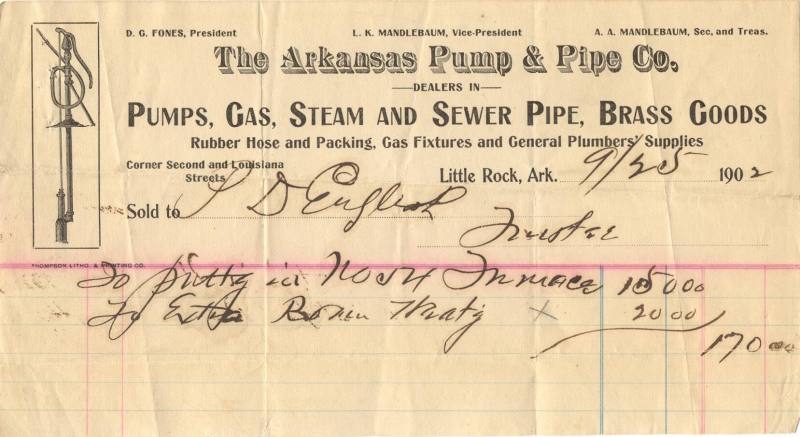 D. G. FONES, President L. K. MANDLEBAUM, Vice-President A. A. MANDLEBAUM, Sec, and Treas.
The Arkansas Pump & Pipe Co.
DEALERS IN
PUMPS, GAS, STEAM AND SEWER PIPE, BRASS GOODS
Rubber Hose and Packing, Gas Fixtures and General Plumbers' Supplies
Corner Second and Louisiana
Streets
Little Rock, Ark. 9/25 1902
Sold to S D English
Trustee
THOMPSON LITHO. & PRINTING CO.
To putting in No 54 Furnace 150 00
To Extra Room 20 00
170 00